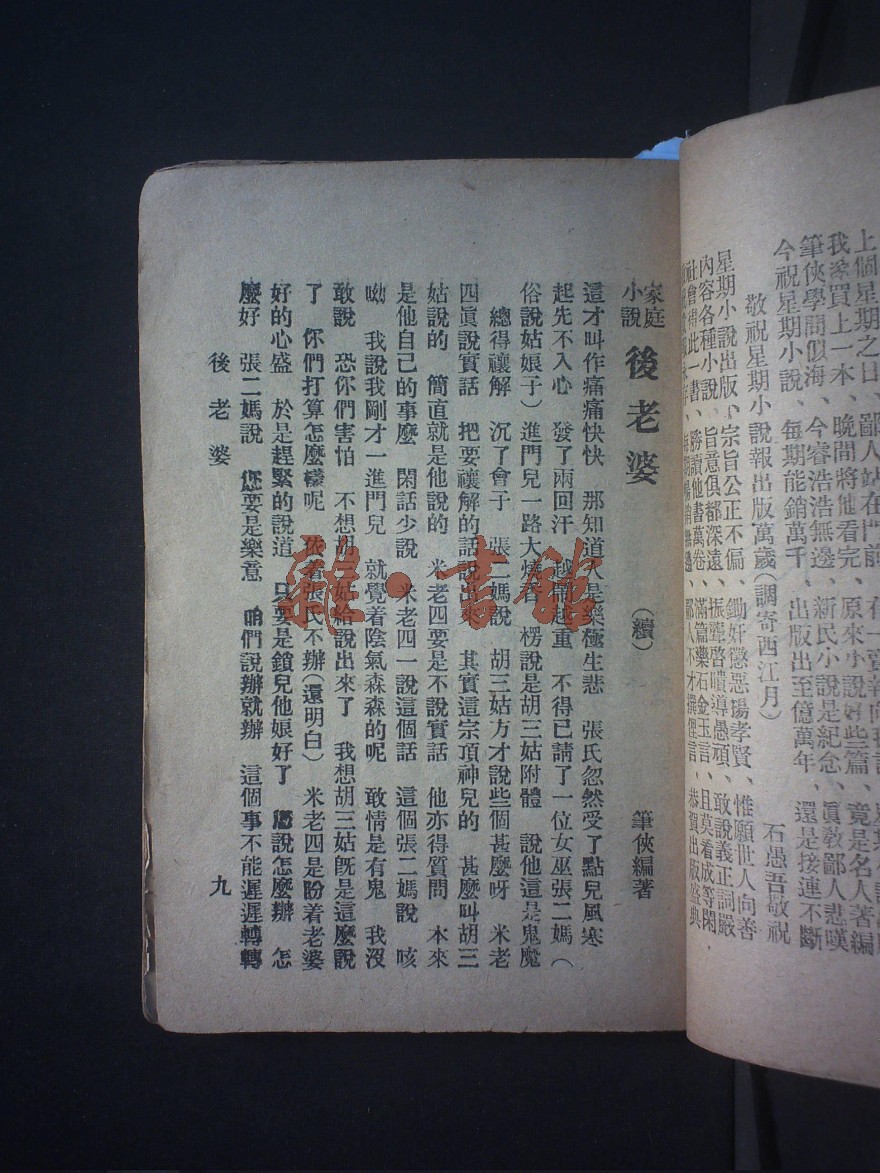 上個星期之日、鄙人站在門前
我遂買上一本、晚間將他看完、原來小說好些篇、竟是名人著編
筆俠學問似海、今睿浩浩無邊、新民小說是紀念、眞敎鄙人悲嘆
今祝星期小說、每期能銷萬千、出版出至億萬年、還是接連不斷
敬祝星期小說報出版萬歲(調寄西江月)
石愚吾敬祝
星期小說出版、宗旨公正不偏、鋤奸懲惡揚孝賢、惟願世人向善
內容各種小說、旨意俱都深遠、振聾啓瞶導愚頑、敢說義正詞嚴
社會得此一書、勝讀他書萬卷、滿篇藥石金玉言、且莫看成等閑
鄙人不才撰俚言、恭賀出版盛典
家庭小說 後老婆 (續) 筆俠編著
這才叫作痛痛快快 那知道人是樂極生悲 張氏忽然受了點兒風寒
起先不入心 發了兩回汗 越鬧越重 不得已請了一位女巫張二媽(
俗說姑娘子)進門兒一路大燒香 楞說是胡三姑附體 說他這是鬼魔
總得禳解 沉了會子 張二媽說 胡三姑方才說些個甚麼呀 米老
四眞說實話 把要禳解的話說出來 其實這宗頂神兒的 甚麼叫胡三
姑說的 簡直就是他說的 米老四要是不說實話 他亦得質問 本來
是他自己的事麼 閑話少說 米老四一說這個話 這個張二媽說 咳
呦 我說我剛才一進門兒 就覺着陰氣森森的呢 敢情是有鬼 我沒
敢說 恐你們害怕 不想胡三姑給說出來了 我想胡三姑旣是這麼說
了 你們打算怎麼樣呢 依着張氏不辦(還明白)米老四是盼着老婆
好的心盛 於是趕緊的說道 只要是鎖兒他娘好了 您說怎麼辦 怎
麼好 張二媽說 您要是樂意 咱們說辦就辦 這個事不能遲遲轉轉
後老婆 九
雜·書館